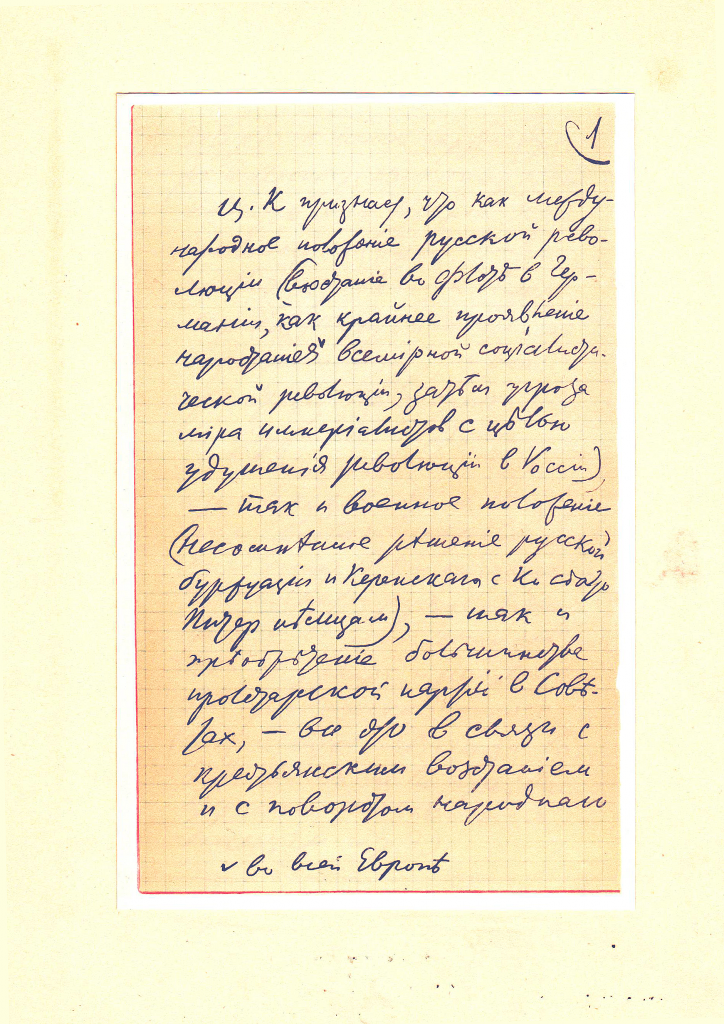 1
Ц. К признает, что как между-
народное положение русской рево-
люціи (возстаніе во флотѣ в Гер-
маніи, как крайнее проявленіе
наростанія ✓ всемірной соціалисти-
ческой революціи, затѣм угроза
мира имперіалистов с цѣлью
удушенія революціи в Россіи)
— так и военное положение
(несомнѣнное рѣшеніе русской
буржуазіи и Керенскаго с Ко сдать
Питер нѣмцам), — так и
пріобрѣтеніе большинства
пролетарской партіей в Совѣ-
тах, — все это в связи с
крестьянским возстаніем
и с поворотом народнаго
✓ во всей Европѣ